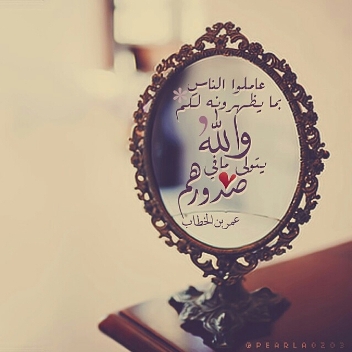 عاملوا الناس
بما يظهرونه لكم
والله
يتولى ما في
صدورهم
عمر بن الخطاب
@PEARLA0203